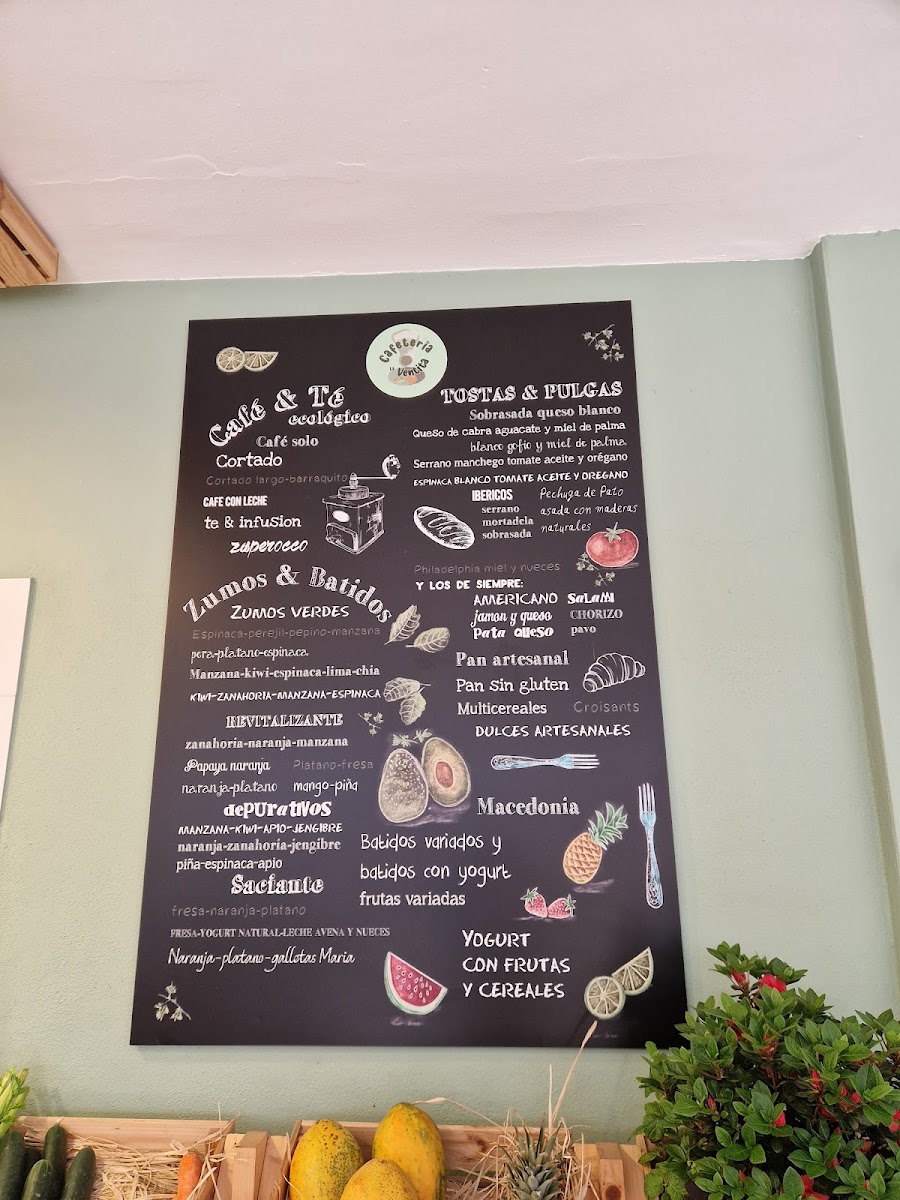 Cafeteria
La Ventita
Café & Té
ecológico
Café solo
Cortado
Cortado largo-barraquito
CAFE CON LECHE
te & infusion
zaperocco
Zumos & Batidos
ZUMOS VERDES
Espinaca-perejil-pepino-manzana
pera-platano-espinaca
Manzana-kiwi-espinaca-lima-chia
KIWI-ZANAHORIA-MANZANA-ESPINACA
REVITALIZANTE
zanahoria-naranja-manzana
Papaya naranja Platano-fresa
naranja-platano mango-piña
dePUratIVOS
MANZANA-KIWI-APIO-JENGIBRE
naranja-zanahoria-jengibre
piña-espinaca-apio
Saciante
fresa-naranja-platano
FRESA-YOGURT NATURAL-LECHE AVENA Y NUECES
Naranja-platano-gallotas Maria
TOSTAS & PULGAS
Sobrasada queso blanco
Queso de cabra aguacate y miel de palma
blanco gofio y miel de palma
Serrano manchego tomate aceite y orégano
ESPINACA BLANCO TOMATE ACEITE Y OREGANO
IBERICOS
serrano
mortadela
sobrasada
Pechuga de Pato
asada con maderas
naturales
Philadelphia miel y nueces
Y LOS DE SIEMPRE:
AMERICANO SaLaMi
jamon y queso CHORIZO
Pata queso pavo
Pan artesanal
Pan sin gluten
Multicereales Croisants
DULCES ARTESANALES
Macedonia
Batidos variados y
batidos con yogurt
frutas variadas
YOGURT
CON FRUTAS
Y CEREALES